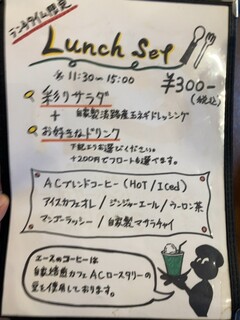 ランチタイム限定
Lunch Set
※ 11:30〜15:00
¥300-
(税込)
彩りサラダ
+ 自家製淡路産玉ネギドレッシング
お好きなドリンク
下記よりお選びください。
+200円でフロートも選べます。
ACブレンドコーヒー (HOT / Iced)
アイスカフェオレ / ジンジャーエール / ウーロン茶
マンゴーラッシー / 自家製マサラチャイ
エースのコーヒーは
自家焙煎カフェ ACロースタリーの
豆を使用しております。